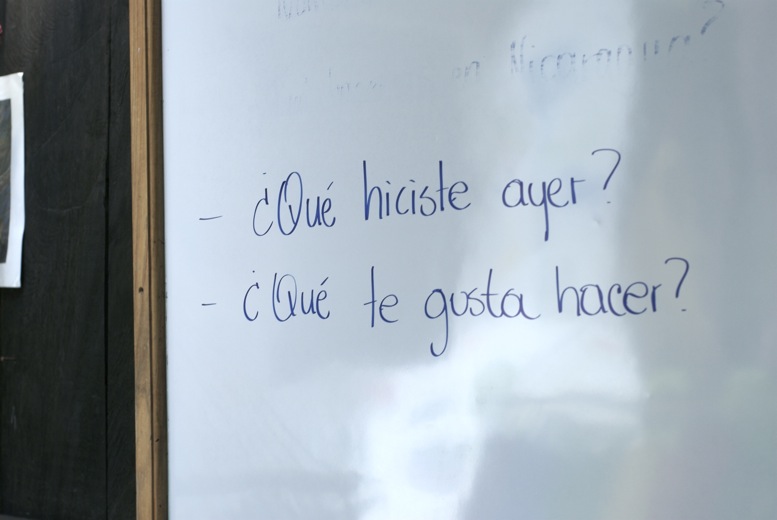 en Nicaragua?
- ¿Qué hiciste ayer?
- ¿Qué te gusta hacer?